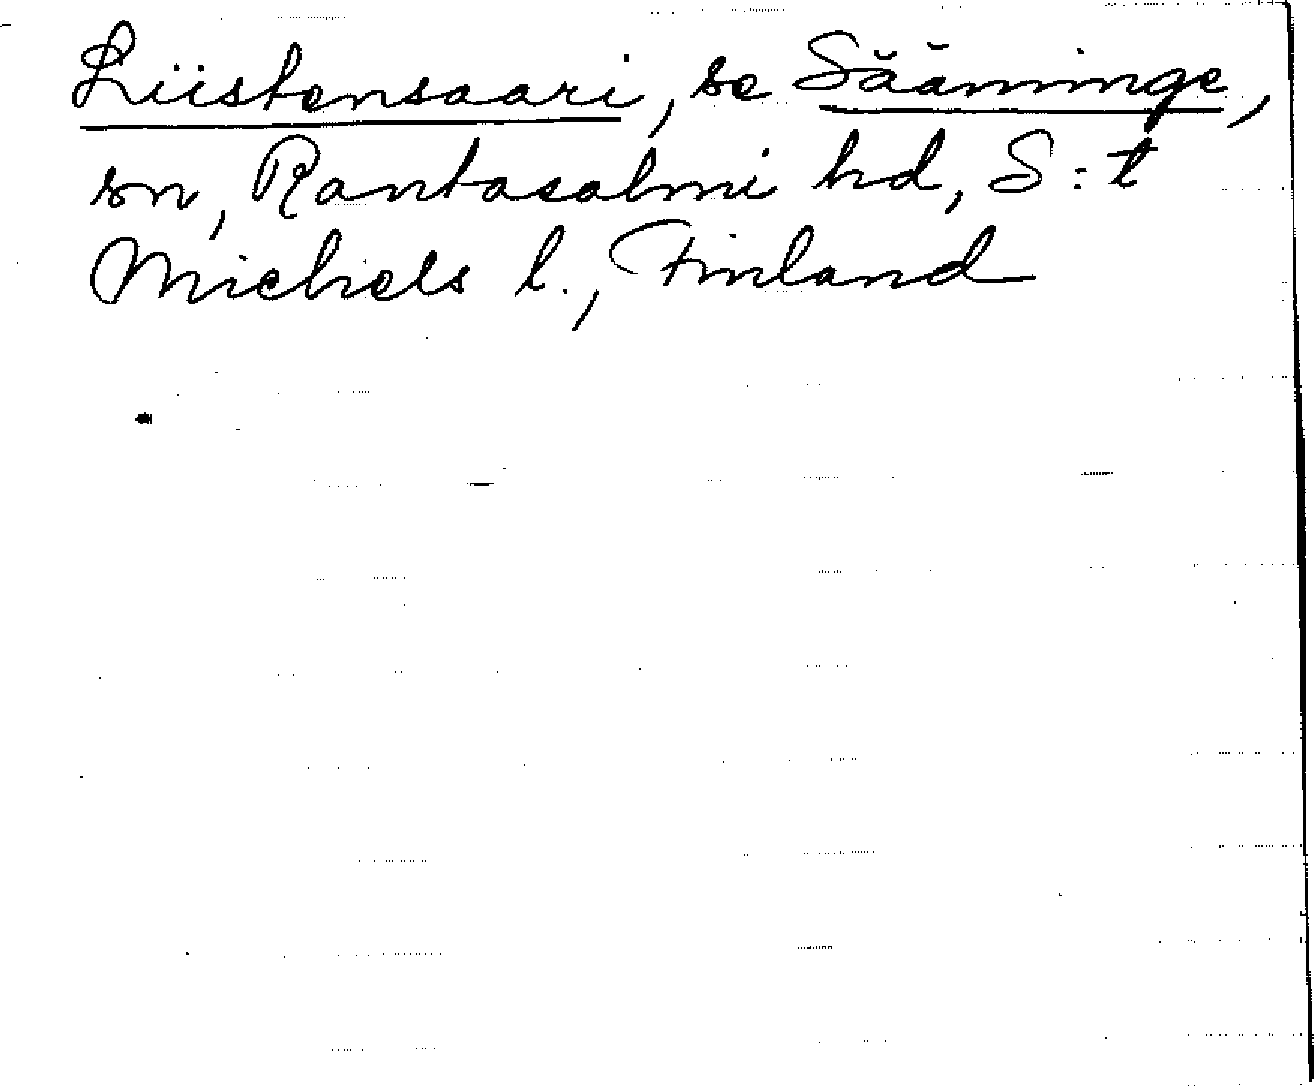 Liistensaari, se Sääminge,
sn, Rantasalmi hd, S:t
Michels l., Finland